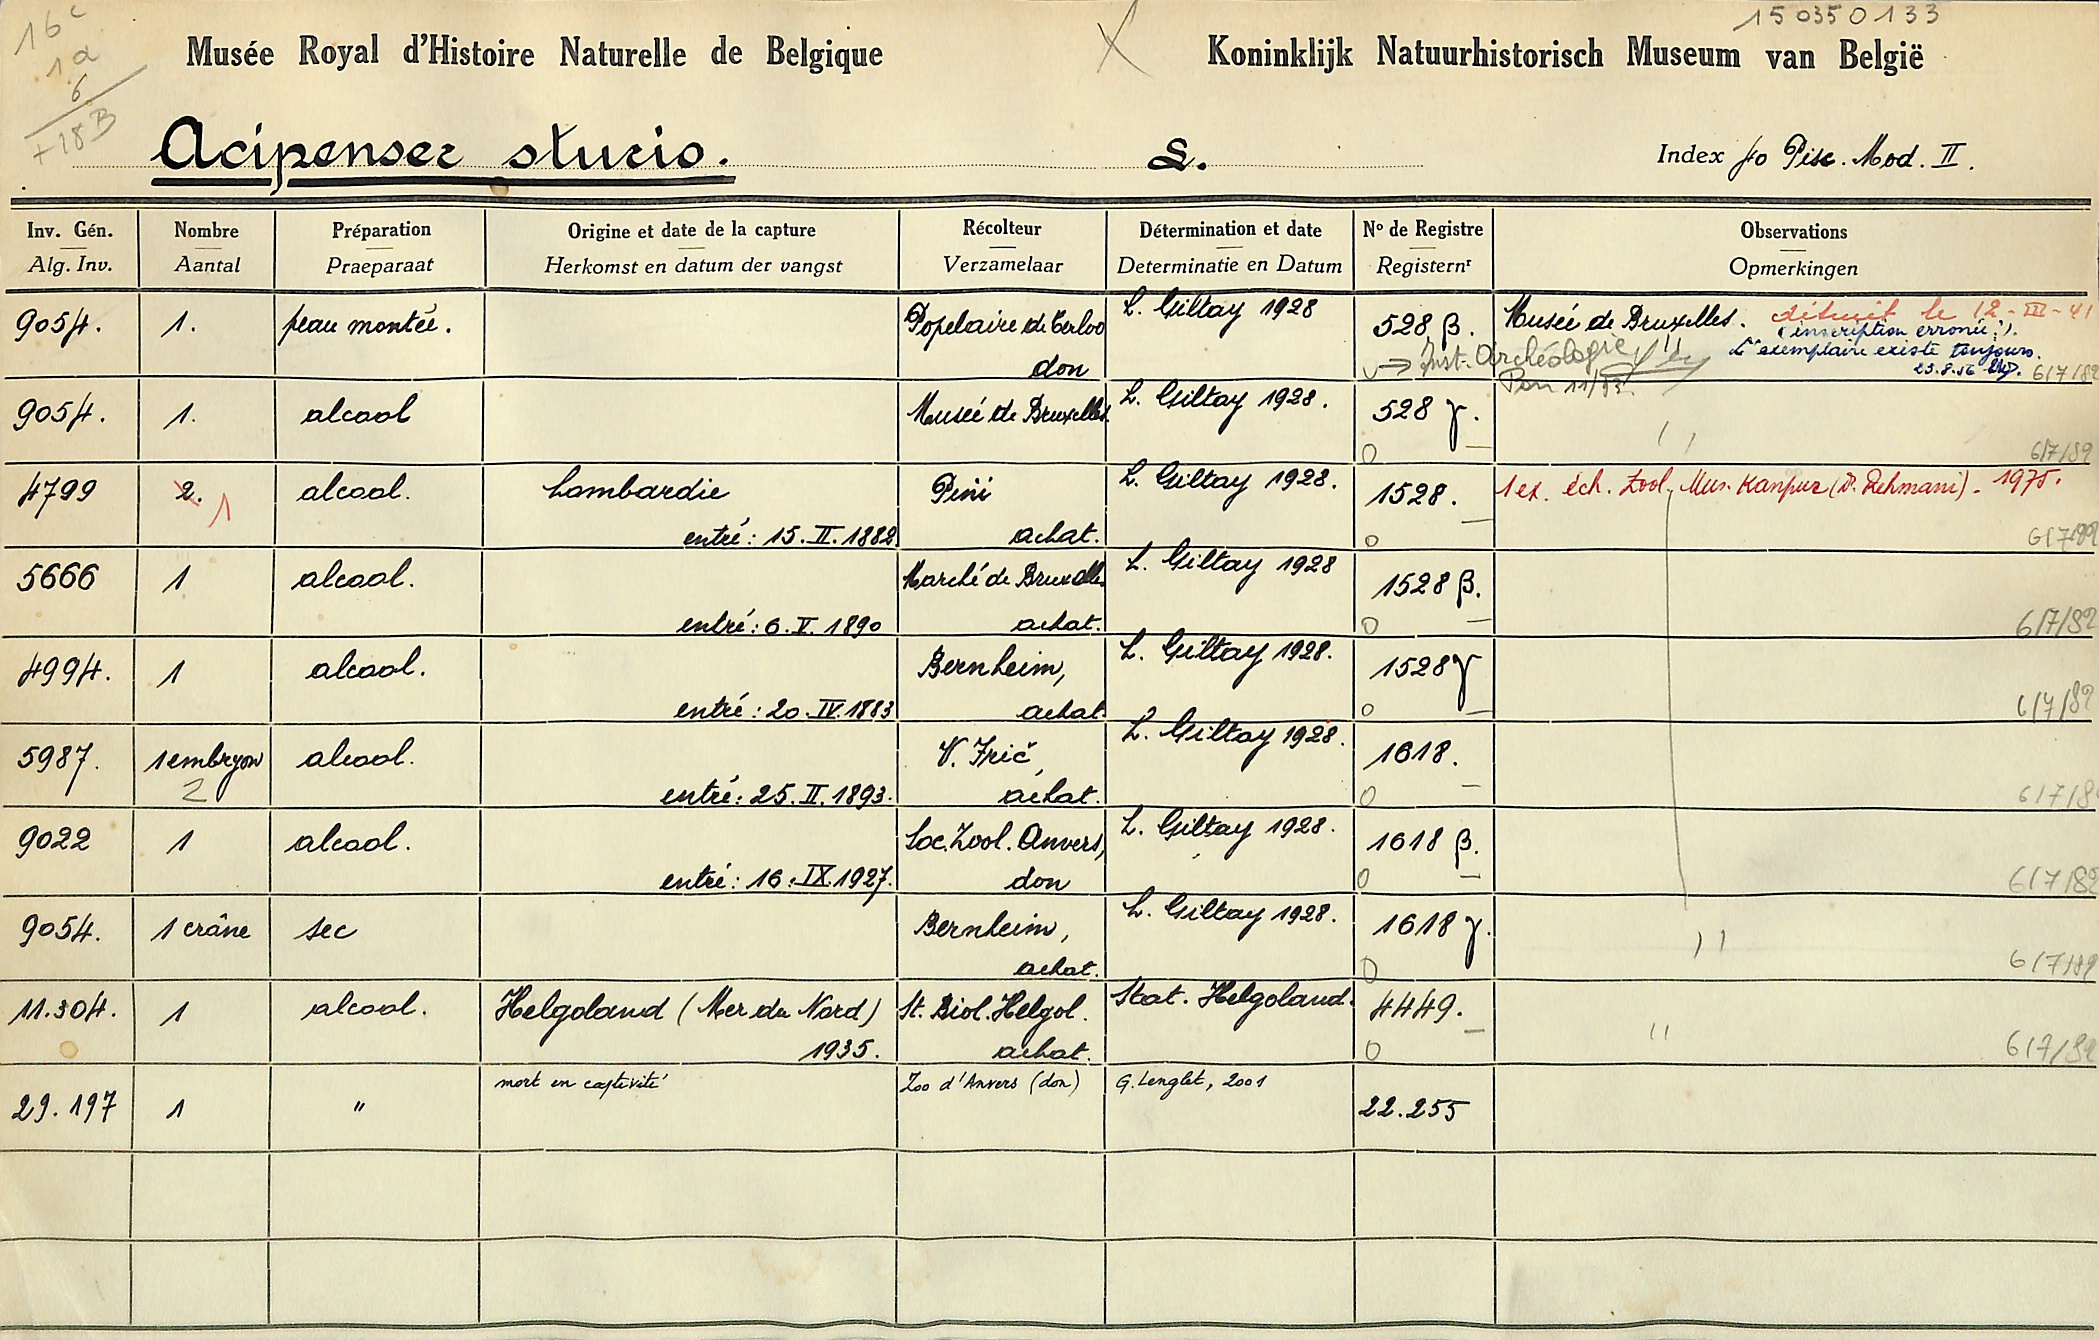 16c
1a
6
+18B
150350133
X
Musée Royal d'Histoire Naturelle de Belgique Koninklijk Natuurhistorisch Museum van België
Acipenser sturio. L. Index fo Pisc. Mod. II.
Inv. Gén. Nombre Préparation Origine et date de la capture Récolteur Détermination et date No de Registre Observations
Alg. Inv. Aantal Praeparaat Herkomst en datum der vangst Verzamelaar Determinatie en Datum Registernr Opmerkingen
9054. 1. peau montée. Popelaire de Terloo L. Giltay 1928 528 β. Musée de Bruxelles. détruit le 12-III-41
(inscription erronée!).
→ Inst. Archéologie L'exemplaire existe toujours.
don 23.8.56 6/7/82
11/83
9054. 1. alcool Musée de Bruxelles. L. Giltay 1928. 528 γ.
0 6/7/82
4799 2. 1 alcool. Lombardie Pini L. Giltay 1928. 1528. 1 ex. éch. Zool. Mus. Kanpur (Dr. Rehmani) - 1975.
entré: 15.II.1882. achat. 0 6/7/82
5666 1 alcool. Marché de Bruxelles L. Giltay 1928 1528 β.
entré: 6.V.1890 achat. 0 6/7/82
4994. 1 alcool. Bernheim, L. Giltay 1928. 1528 γ
entré: 20.IV.1883 achat. 0 6/7/82
5987. 1 embryon alcool. V. Frič, L. Giltay 1928. 1618.
2 entré: 25.II.1893. achat. 0 6/7/82
9022 1 alcool. Soc. Zool. Anvers, L. Giltay 1928. 1618 β.
entré: 16.IX.1927. don 0 6/7/82
9054. 1 crâne sec Bernheim, L. Giltay 1928. 1618 γ. ''
achat. 0 6/7/82
11.304. 1 alcool. Helgoland (Mer du Nord) St. Biol. Helgol. Stat. Helgoland. 4449. ''
1935. achat. 0 6/7/82
mort en captivité Zoo d'Anvers (don) G. Lenglet, 2001
29.197 1 " 22.255